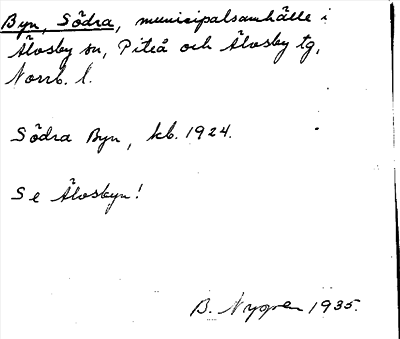 Byn, Södra, municipalsamhälle i
Älvsby sn, Piteå och Älvsby tg,
Norrb. l.
Södra Byn, kb. 1924.
Se Älvsbyn!
B. Nygren 1935.